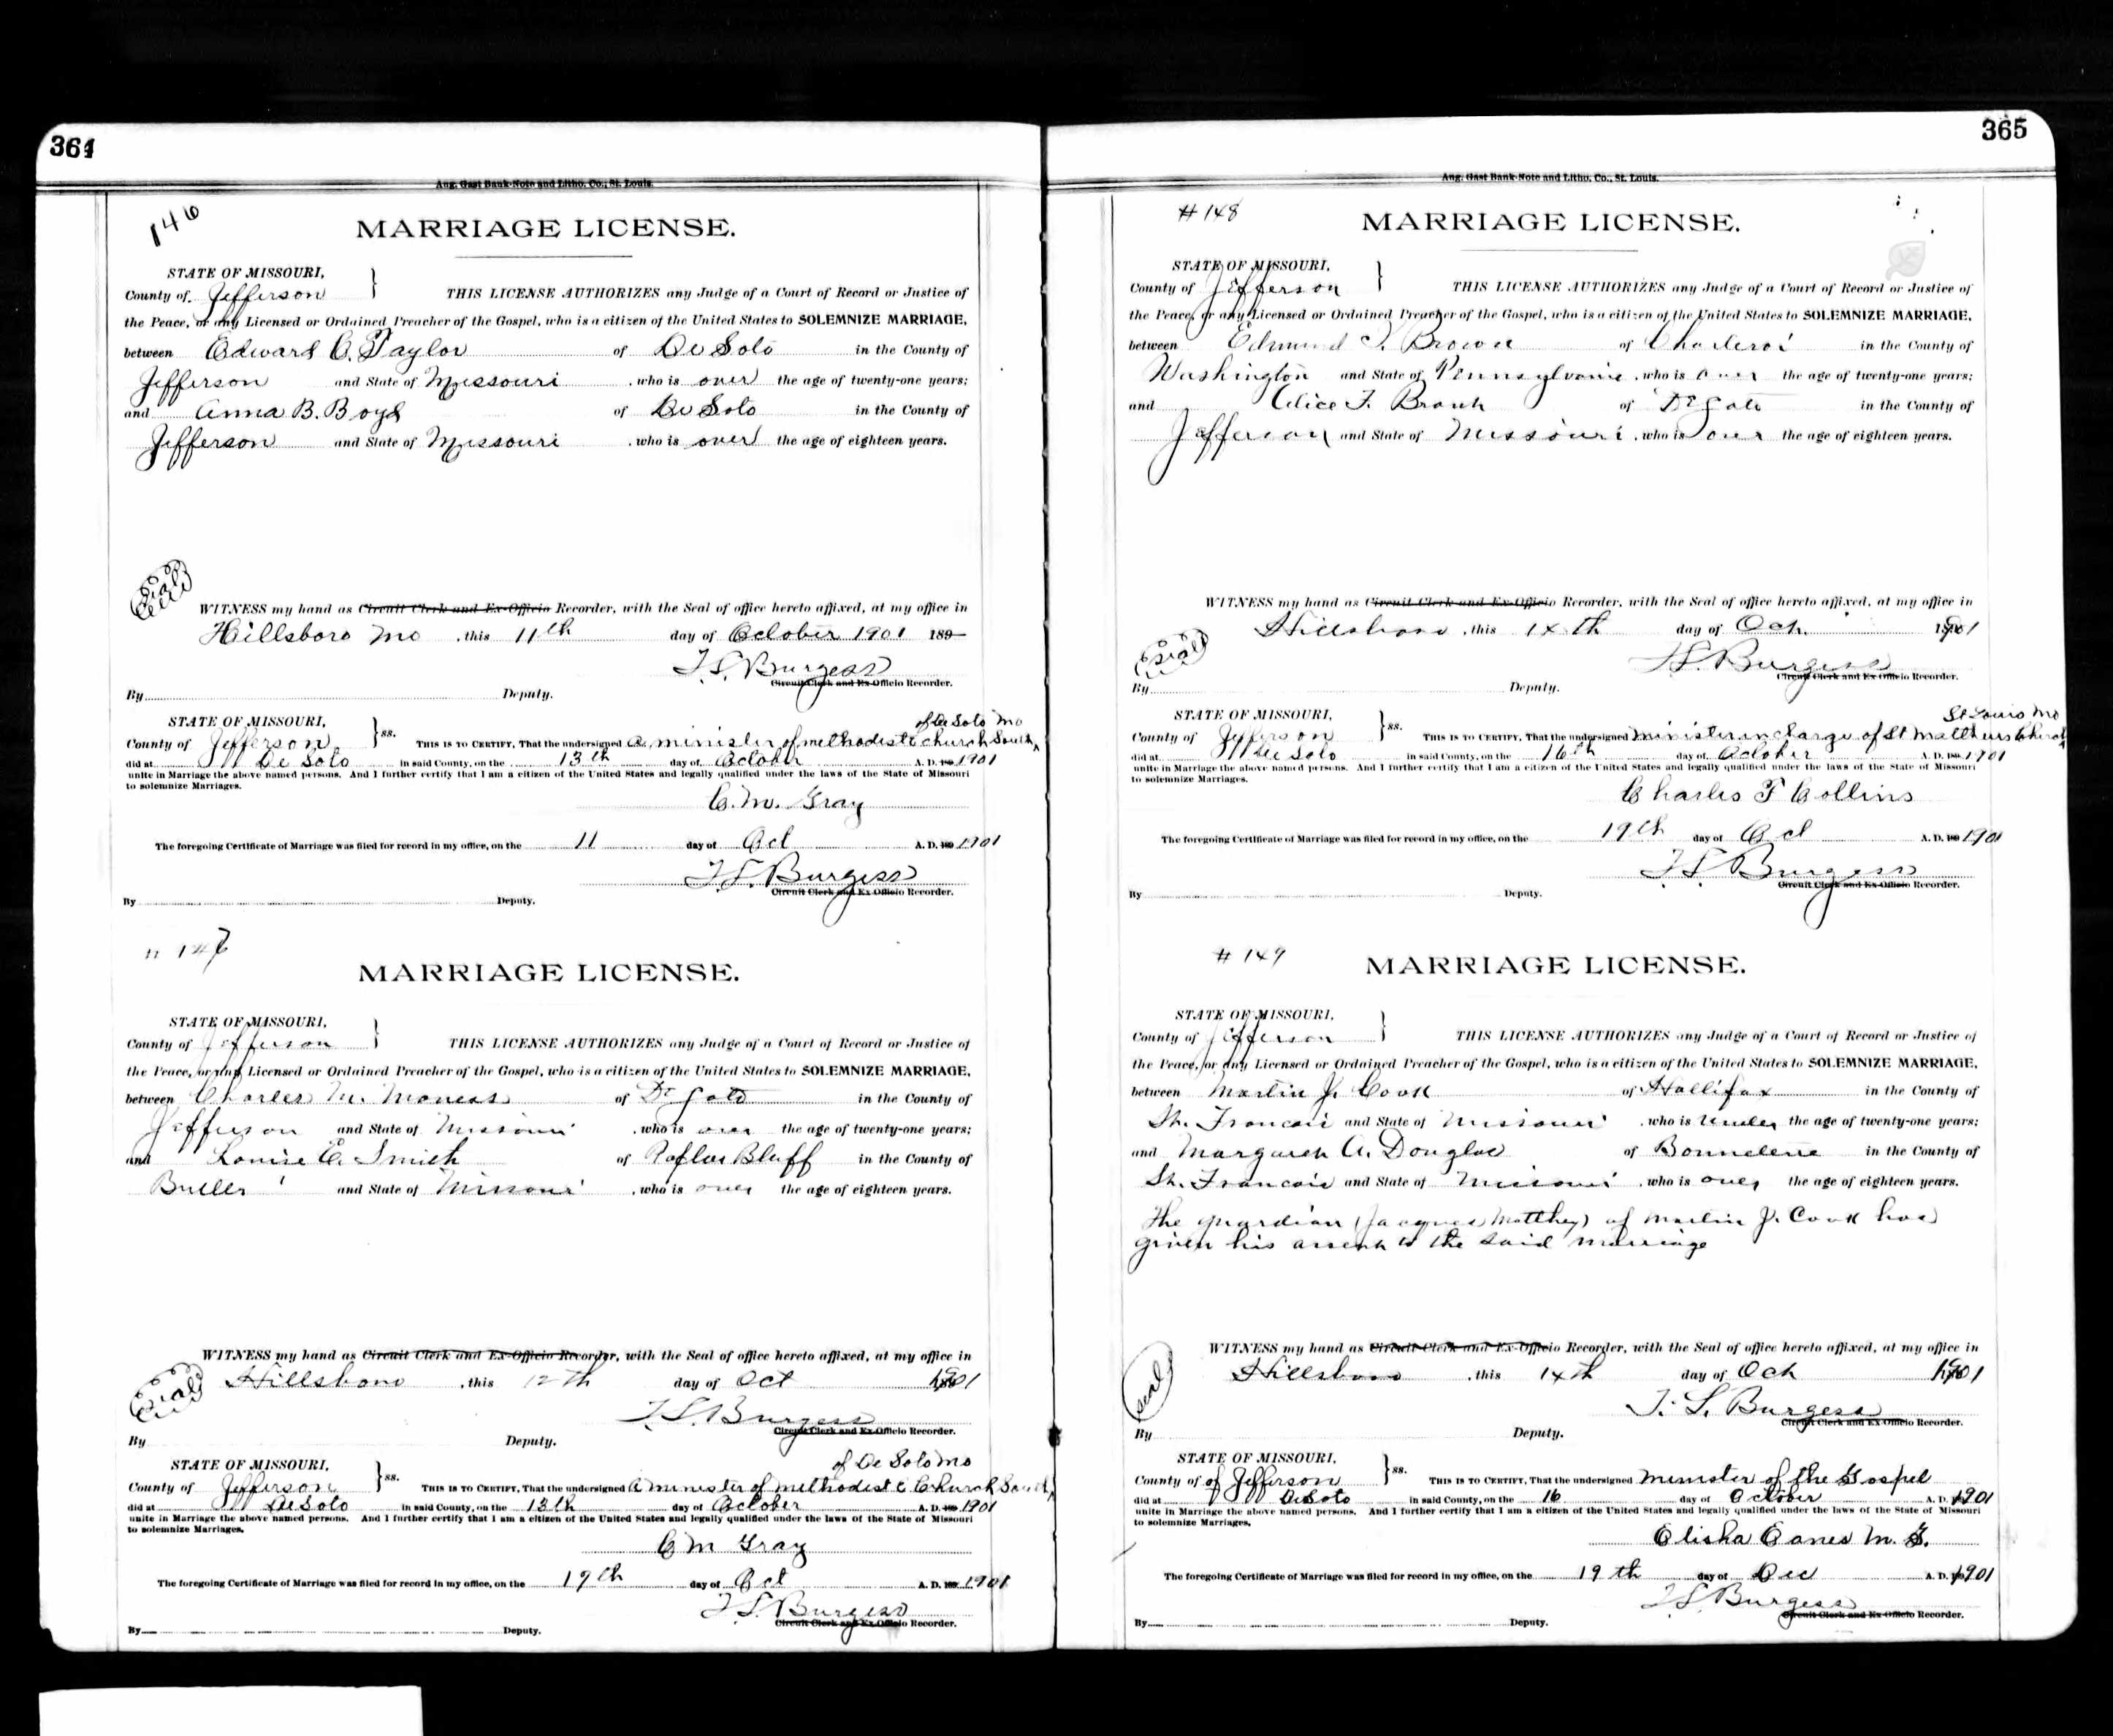 364
Aug. Gast Bank-Note and Litho. Co., St. Louis.
146
MARRIAGE LICENSE.
STATE OF MISSOURI,
County of Jefferson THIS LICENSE AUTHORIZES any Judge of a Court of Record or Justice of
the Peace, or any Licensed or Ordained Preacher of the Gospel, who is a citizen of the United States to SOLEMNIZE MARRIAGE,
between Edward C. Taylor of De Soto in the County of
Jefferson and State of Missouri, who is over the age of twenty-one years;
and Anna B. Boyd of De Soto in the County of
Jefferson and State of Missouri, who is over the age of eighteen years.
Seal
WITNESS my hand as Circuit Clerk and Ex-Officio Recorder, with the Seal of office hereto affixed, at my office in
Hillsboro Mo, this 11th day of October 1901 189
T. S. Burgess
Circuit Clerk and Ex Officio Recorder.
By Deputy.
of De Soto Mo
STATE OF MISSOURI,
County of Jefferson ss. THIS IS TO CERTIFY, That the undersigned a minister of methodist church South
did at De Soto in said County, on the 13th day of October A. D. 1901
unite in Marriage the above named persons. And I further certify that I am a citizen of the United States and legally qualified under the laws of the State of Missouri
to solemnize Marriages.
C. M. Gray
The foregoing Certificate of Marriage was filed for record in my office, on the 11 day of Oct A. D. 1901
T. S. Burgess
Circuit Clerk and Ex-Officio Recorder.
By Deputy.
147
MARRIAGE LICENSE.
STATE OF MISSOURI,
County of Jefferson THIS LICENSE AUTHORIZES any Judge of a Court of Record or Justice of
the Peace, or any Licensed or Ordained Preacher of the Gospel, who is a citizen of the United States to SOLEMNIZE MARRIAGE,
between Charles M. Maness of De Soto in the County of
Jefferson and State of Missouri, who is over the age of twenty-one years;
and Louise E. Smith of Poplar Bluff in the County of
Butler and State of Missouri, who is over the age of eighteen years.
WITNESS my hand as Circuit Clerk and Ex-Officio Recorder, with the Seal of office hereto affixed, at my office in
Seal Hillsboro, this 12th day of Oct 1901
T. S. Burgess
Circuit Clerk and Ex-Officio Recorder.
By Deputy.
of De Soto Mo
STATE OF MISSOURI,
County of Jefferson ss. THIS IS TO CERTIFY, That the undersigned a minister of methodist E Church South
did at De Soto in said County, on the 13th day of October A. D. 1901
unite in Marriage the above named persons. And I further certify that I am a citizen of the United States and legally qualified under the laws of the State of Missouri
to solemnize Marriages.
C M Gray
The foregoing Certificate of Marriage was filed for record in my office, on the 19th day of Oct A. D. 1901
T. S. Burgess
Circuit Clerk and Ex-Officio Recorder.
By Deputy.
365
Aug. Gast Bank-Note and Litho. Co., St. Louis.
# 148
MARRIAGE LICENSE.
STATE OF MISSOURI,
County of Jefferson THIS LICENSE AUTHORIZES any Judge of a Court of Record or Justice of
the Peace, or any Licensed or Ordained Preacher of the Gospel, who is a citizen of the United States to SOLEMNIZE MARRIAGE,
between Edmund T. Brown of Charleroi in the County of
Washington and State of Pennsylvania, who is over the age of twenty-one years;
and Alice F. Branch of De Soto in the County of
Jefferson and State of Missouri, who is over the age of eighteen years.
WITNESS my hand as Circuit Clerk and Ex-Officio Recorder, with the Seal of office hereto affixed, at my office in
Seal Hillsboro, this 14th day of Oct. 1901
T. S. Burgess
Circuit Clerk and Ex Officio Recorder.
By Deputy.
St Louis Mo
STATE OF MISSOURI,
County of Jefferson ss. THIS IS TO CERTIFY, That the undersigned minister in charge of St Matthews Church
did at De Soto in said County, on the 16th day of October A. D. 1901
unite in Marriage the above named persons. And I further certify that I am a citizen of the United States and legally qualified under the laws of the State of Missouri
to solemnize Marriages.
Charles F Collins
The foregoing Certificate of Marriage was filed for record in my office, on the 19th day of Oct A. D. 1901
T. S. Burgess
Circuit Clerk and Ex-Officio Recorder.
By Deputy.
# 149
MARRIAGE LICENSE.
STATE OF MISSOURI,
County of Jefferson THIS LICENSE AUTHORIZES any Judge of a Court of Record or Justice of
the Peace, or any Licensed or Ordained Preacher of the Gospel, who is a citizen of the United States to SOLEMNIZE MARRIAGE,
between Martin J. Cook of Hallifax in the County of
St. Francois and State of Missouri, who is under the age of twenty-one years;
and Margaret A. Douglas of Bonneterre in the County of
St. Francois and State of Missouri, who is over the age of eighteen years.
The guardian (Jacques Matthey) of Martin J. Cook has
given his assent to the said marriage
WITNESS my hand as Circuit Clerk and Ex-Officio Recorder, with the Seal of office hereto affixed, at my office in
Seal Hillsboro, this 14th day of Oct 1901
T. S. Burgess
Circuit Clerk and Ex-Officio Recorder.
By Deputy.
STATE OF MISSOURI,
County of of Jefferson ss. THIS IS TO CERTIFY, That the undersigned Minister of the Gospel
did at De Soto in said County, on the 16 day of October A. D. 1901
unite in Marriage the above named persons. And I further certify that I am a citizen of the United States and legally qualified under the laws of the State of Missouri
to solemnize Marriages.
Elisha Eanes M. G.
The foregoing Certificate of Marriage was filed for record in my office, on the 19th day of Dec A. D. 1901
T. S. Burgess
Circuit Clerk and Ex-Officio Recorder.
By Deputy.